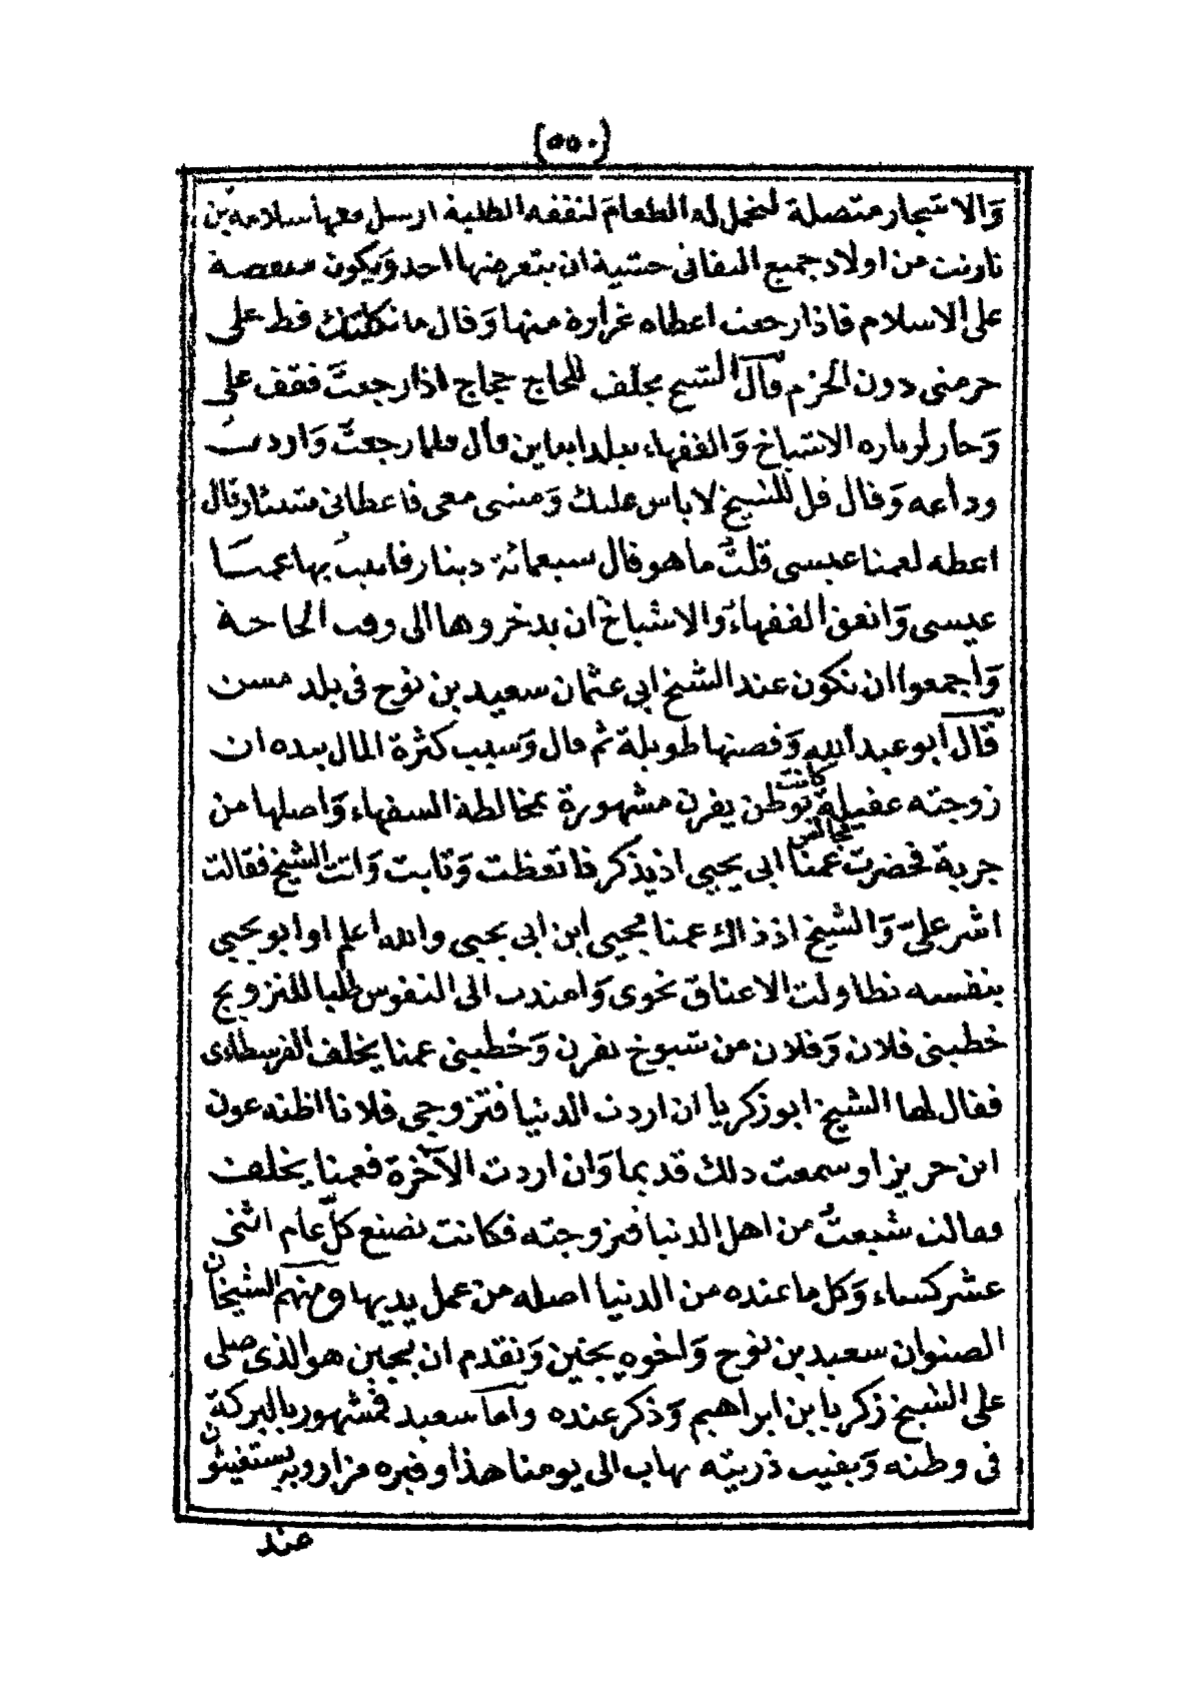 (٥٥٠)
وَالاشجار متصلة لتحمل له الطعام لنفقه الطلبة ارسل معها سلامة بن
من اولاد جميع خشية ان يتعرضها احد وَيكون منقصة
على الاسلام فاذا رجعت اعطاه غرارة منها وَقال ما نكلتك قط على
حرمتى دون الحزم قال الشيخ يخلف للحاج حجاج اذا رجعتَ فقف على
الاشياخ وَالفقهاء قال فلما رجعتُ وَاردت
وداعه وَقال قل للشيخ لا باس عليك وَمشى معى فاعطانى وقال
اعطه لعمنا عيسى قلتُ ما هو قال سبعمائة دينار فاتيتُ بها عمنا
عيسى وَاتفق الفقهاءُ وَالاشياخ ان يدخروها الى وقت الحاجة
وَاجمعوا ان تكون عند الشيخ ابى عثمان سعيد بن نوح فى بلد
قال ابو عبد الله وَقصتها طويلة ثم قال وَسبب كثرة المال بيده ان
زوجته عقيلة كانت توطن يفرن مشهورة بمخالطة السفهاء وَاصلها من
جربة فحضرت مجالس عمنا ابى يحيى اذ يذكر فاتعظت وَتابت وَاتت الشيخ فقالت
اشر علىّ وَالشيخ اذ ذاك عمنا يحيى ابن ابى يحيى والله اعلم او ابو يحيى
بنفسه تطاولت الاعناق نحوى وَامتدت الى النفوس طلبا للتزويج
خطبنى فلان وَفلان من شيوخ يفرن وَخطبنى عمنا يخلف الفرسطاءى
فقال لها الشيخ ابو زكريا ان اردت الدنيا فتزوجى فلانا اظنه عون
ابن حريز او سمعت ذلك قديما وَان اردت الآخرة فعمنا يخلف
وقالت شبعتُ من اهل الدنيا فتزوجته فكانت تصنع كلَّ عام اثنى
عشر كساء وَكل ما عنده من الدنيا اصله من عمل يديها ومنهم الشيخان
الصنوان سعيد بن نوح وَاخوه يجتين وَتقدم ان يجتين هو الذى صلى
على الشيخ زكريا بن ابراهيم وَذكر عنده وامّا سعيد فمشهور بالبركة
فى وطنه وَبقيت ذريته بها الى يومنا هذا وقبره مزار وبه يستغيثون
عند